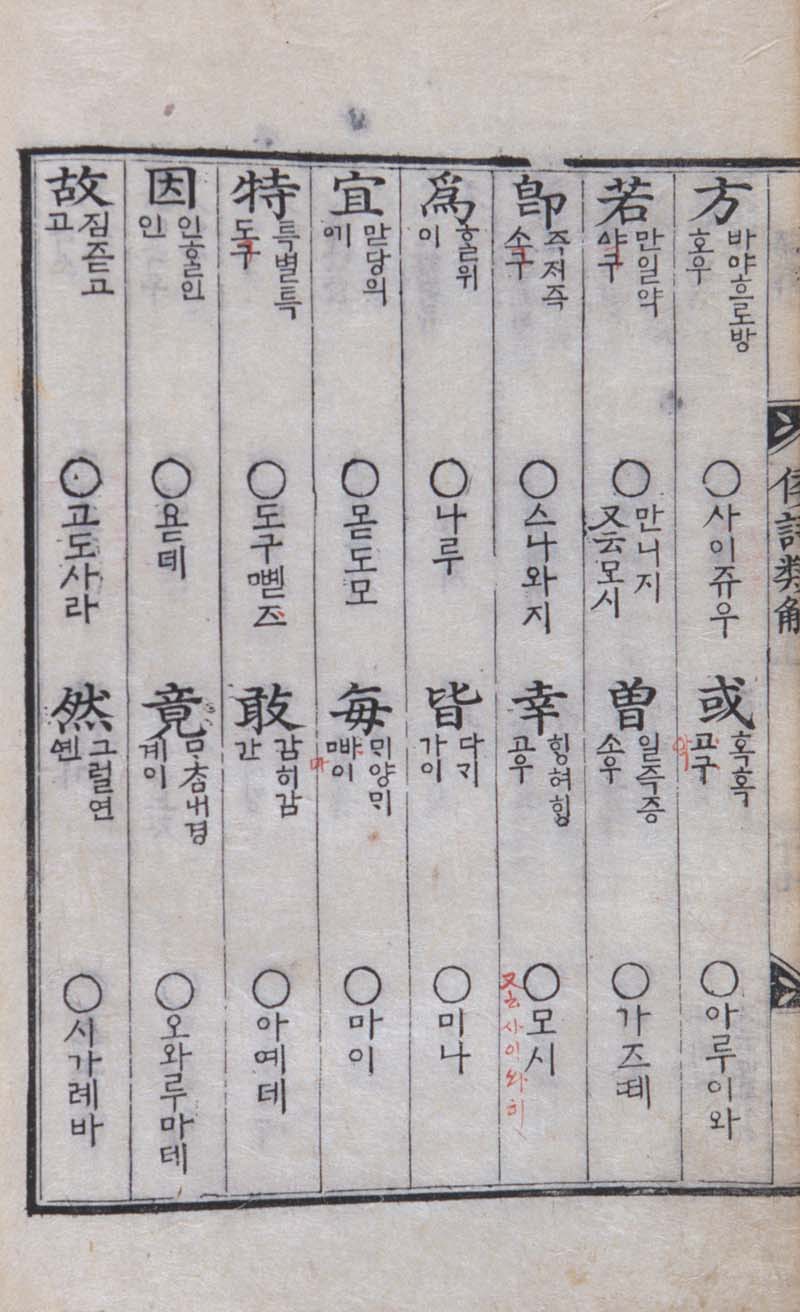 倭語類解
方
바야흐로방
호우
○사이쥬우
或
혹혹
고구
○아루이와
若
만일약
야구
○만니지
又云모시
曽
일즉증
소우
○가즈떼
卽
즉저즉
소구
○스나와지
幸
ᄒᆡᆼ혀ᄒᆡᆼ
고우
○모시
又云사이와히
爲
ᄒᆞᆯ위
이
○나루
皆
다ᄀᆡ
가이
○미나
宜
맏당의
예
○몯도모
每
ᄆᆡ양ᄆᆡ
빠이
마
○마이
特
특별특
도구
○도구뼫즈
敢
감히감
간
○아예데
因
인ᄒᆞᆯ인
인
○욛데
竟
ᄆᆞᄎᆞᆷ내경
계이
○오와루마데
故
짐즏고
고
○고도사라
然
그럴연
옌
○시가례바